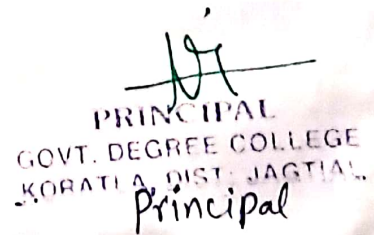 PRINCIPAL
GOVT. DEGREE COLLEGE
KORATLA, DIST. JAGTIAL.
Principal